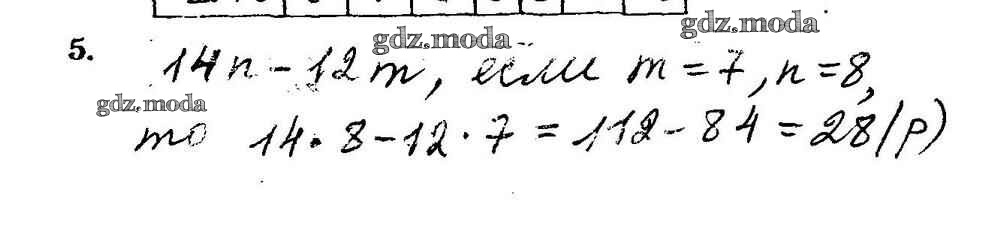 gdz.moda
gdz.moda
5. 14n - 12m, если m = 7, n = 8,
gdz.moda
то 14 · 8 - 12 · 7 = 112 - 84 = 28 (р)